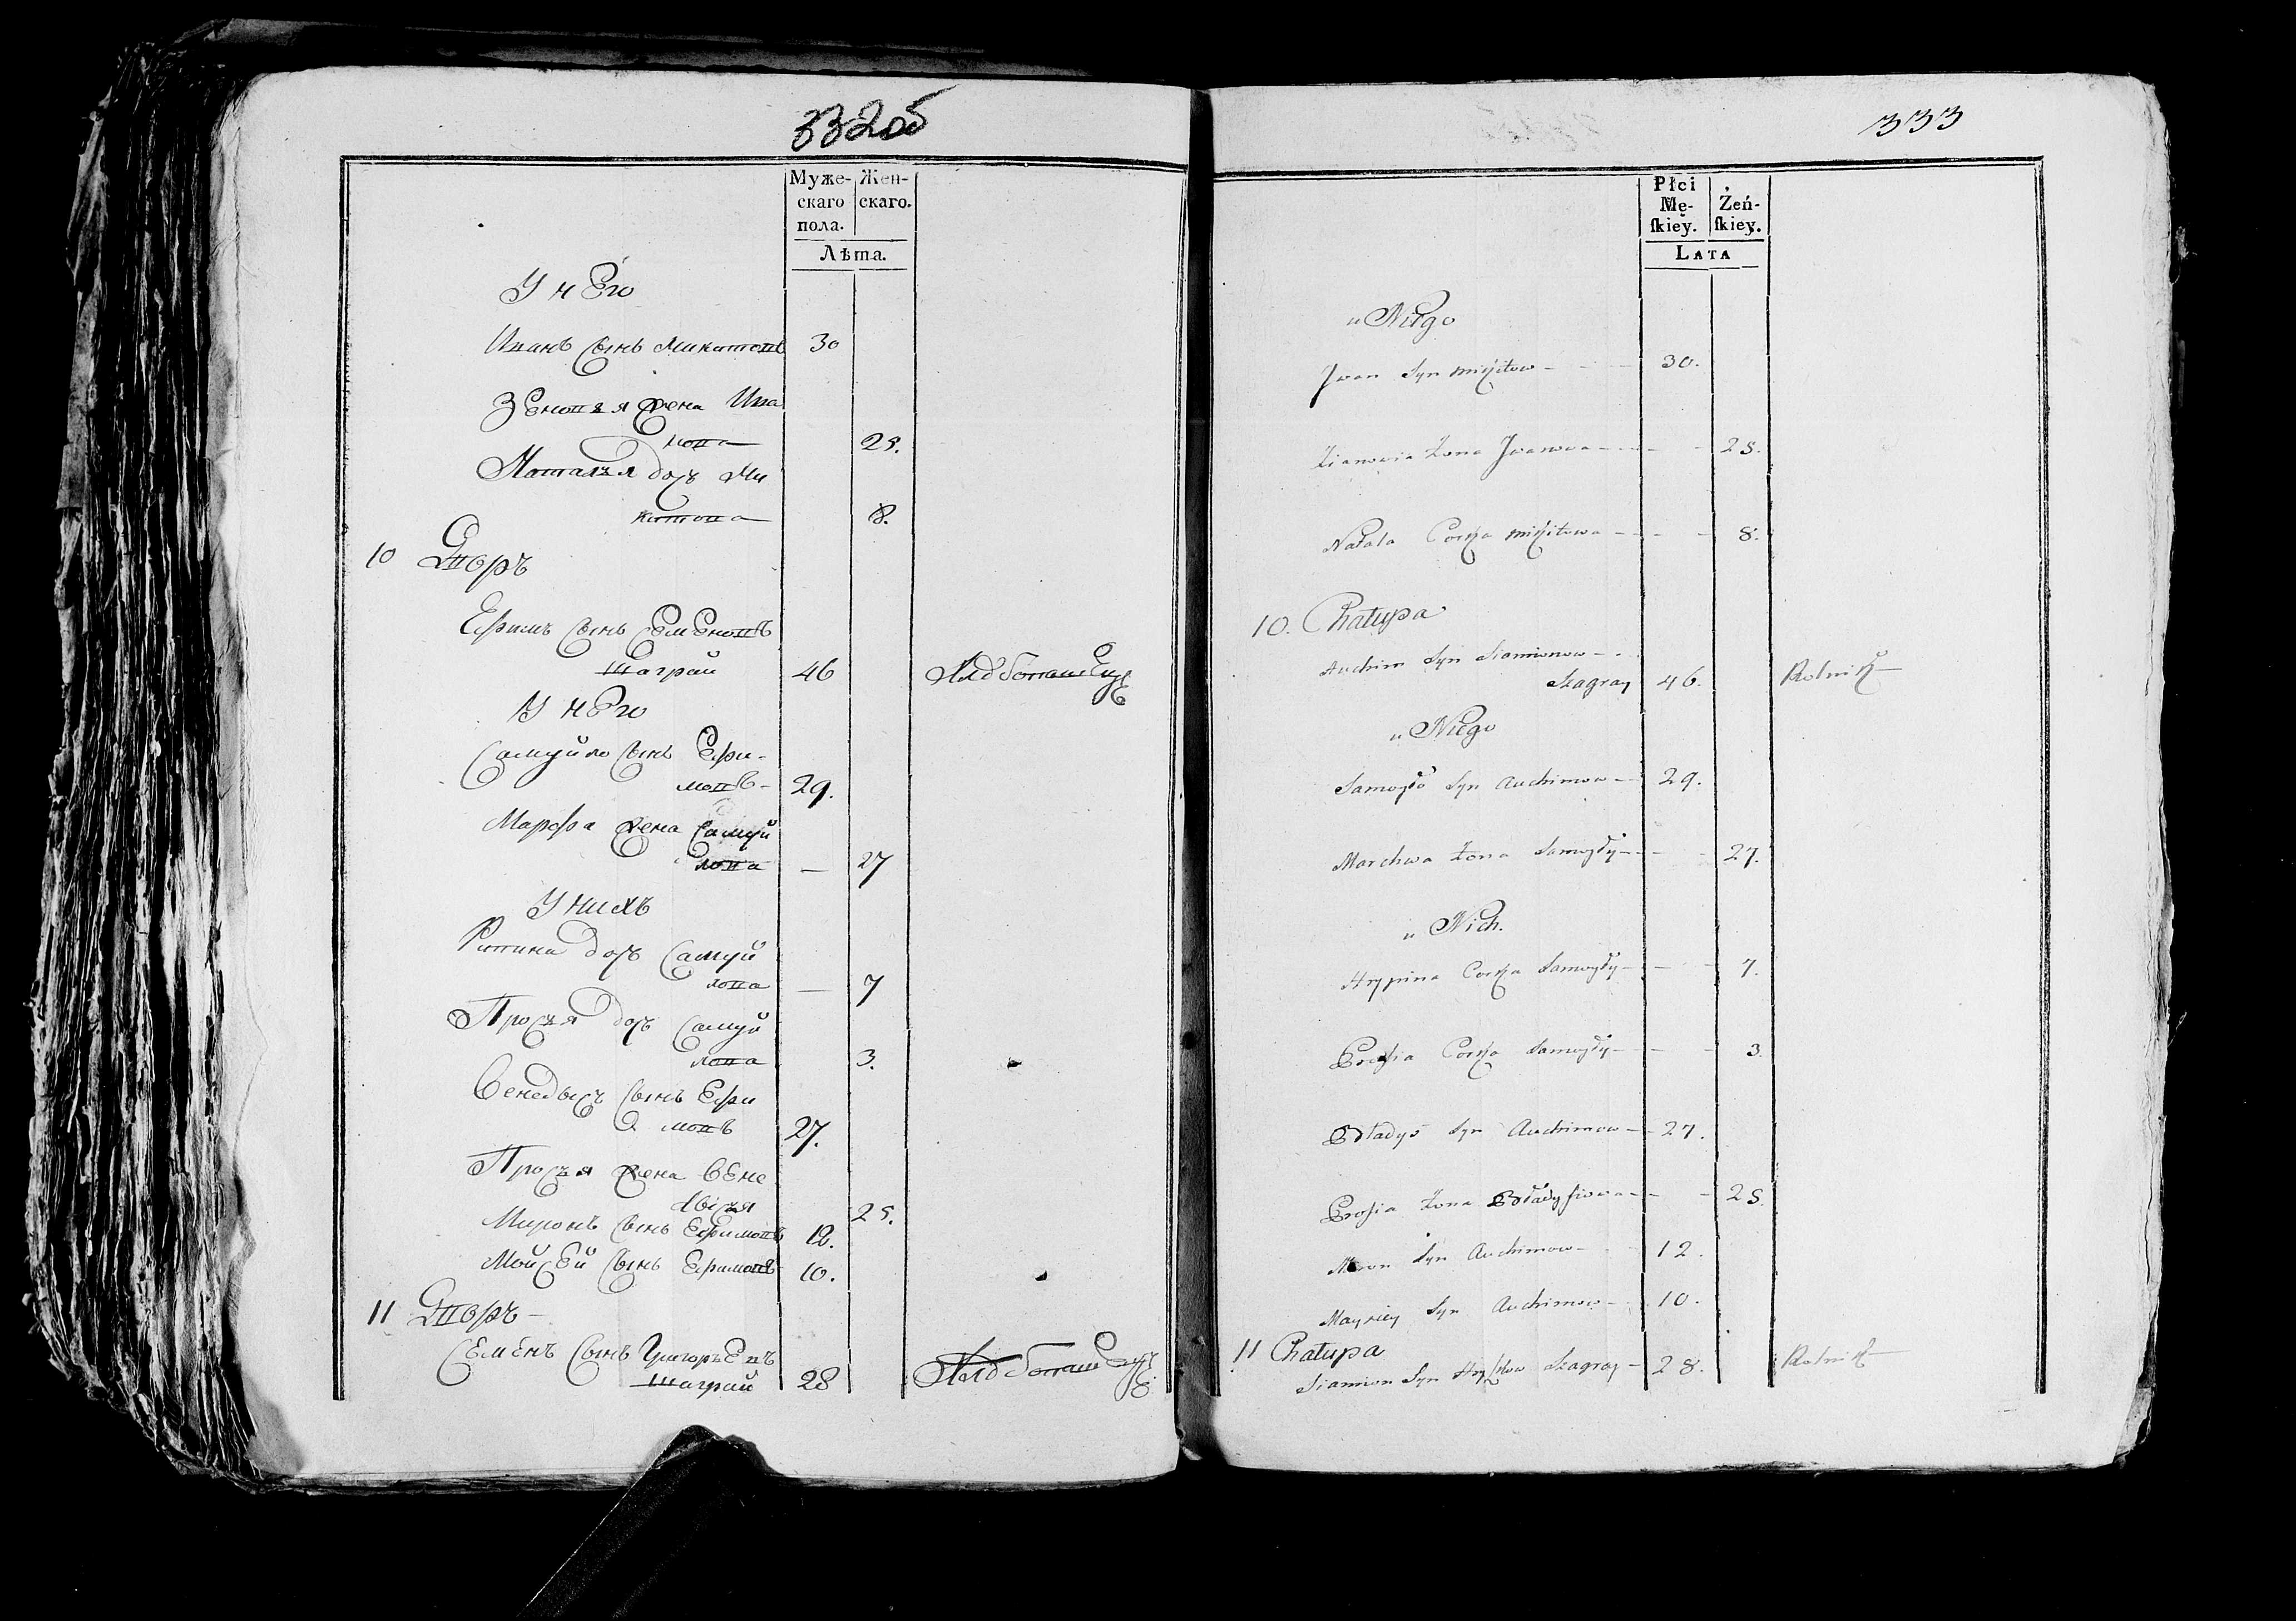 332об
Муже-
скаго
пола.
Жен-
скаго.
Лѣта.
У него
Иванъ сынъ Микитовъ 30
Зеновѣя жена Ива
нова 25.
Наталья дочъ Ми
китова 8.
10 Дворъ
Ефимъ сынъ Семеновъ
Шаграй 46 Хлѣбопашецъ
У него
Самуйло сынъ Ефи-
мовъ- 29.
Марфа жена Самуй
лова — 27
У нихъ
дочъ Самуй
лова — 7
Просья дочъ Самуй
лова 3.
сынъ Ефи
мовъ 27.
Просья жена Бене
25.
Миронъ сынъ Ефимовъ 12.
Мойсей сынъ Ефимовъ 10.
11 Дворъ-
Семенъ сынъ Григорьевъ
Шаграй 28 Хлѣбопашецъ
333
Płci
Mę-
ſkiey.
Żeń-
ſkiey.
Lata
u Niego
Jwan Syn Mikitow - - - 30.
Zianowia Żona Jwanowa - - - 25.
Natala Corka Mikitowa - - - 8.
10. Chałupa
Auchim Syn Siamionow - .
Szagray 46. Rolnik
u Niego
Samoyło Syn Auchimow - 29.
Marchwa Żona Samoyły - - - 27.
u Nich.
Hrypina Corka Samoyły - - - 7.
Prosia Corka Samoyły - - - 3.
Syn Auchimow - 27.
Prosia Żona - - 25.
Miron Syn Auchimow - 12.
Mayſiey Syn Auchimow - 10.
11 Chałupa
Siamion Syn Szagray - 28. Rolnik